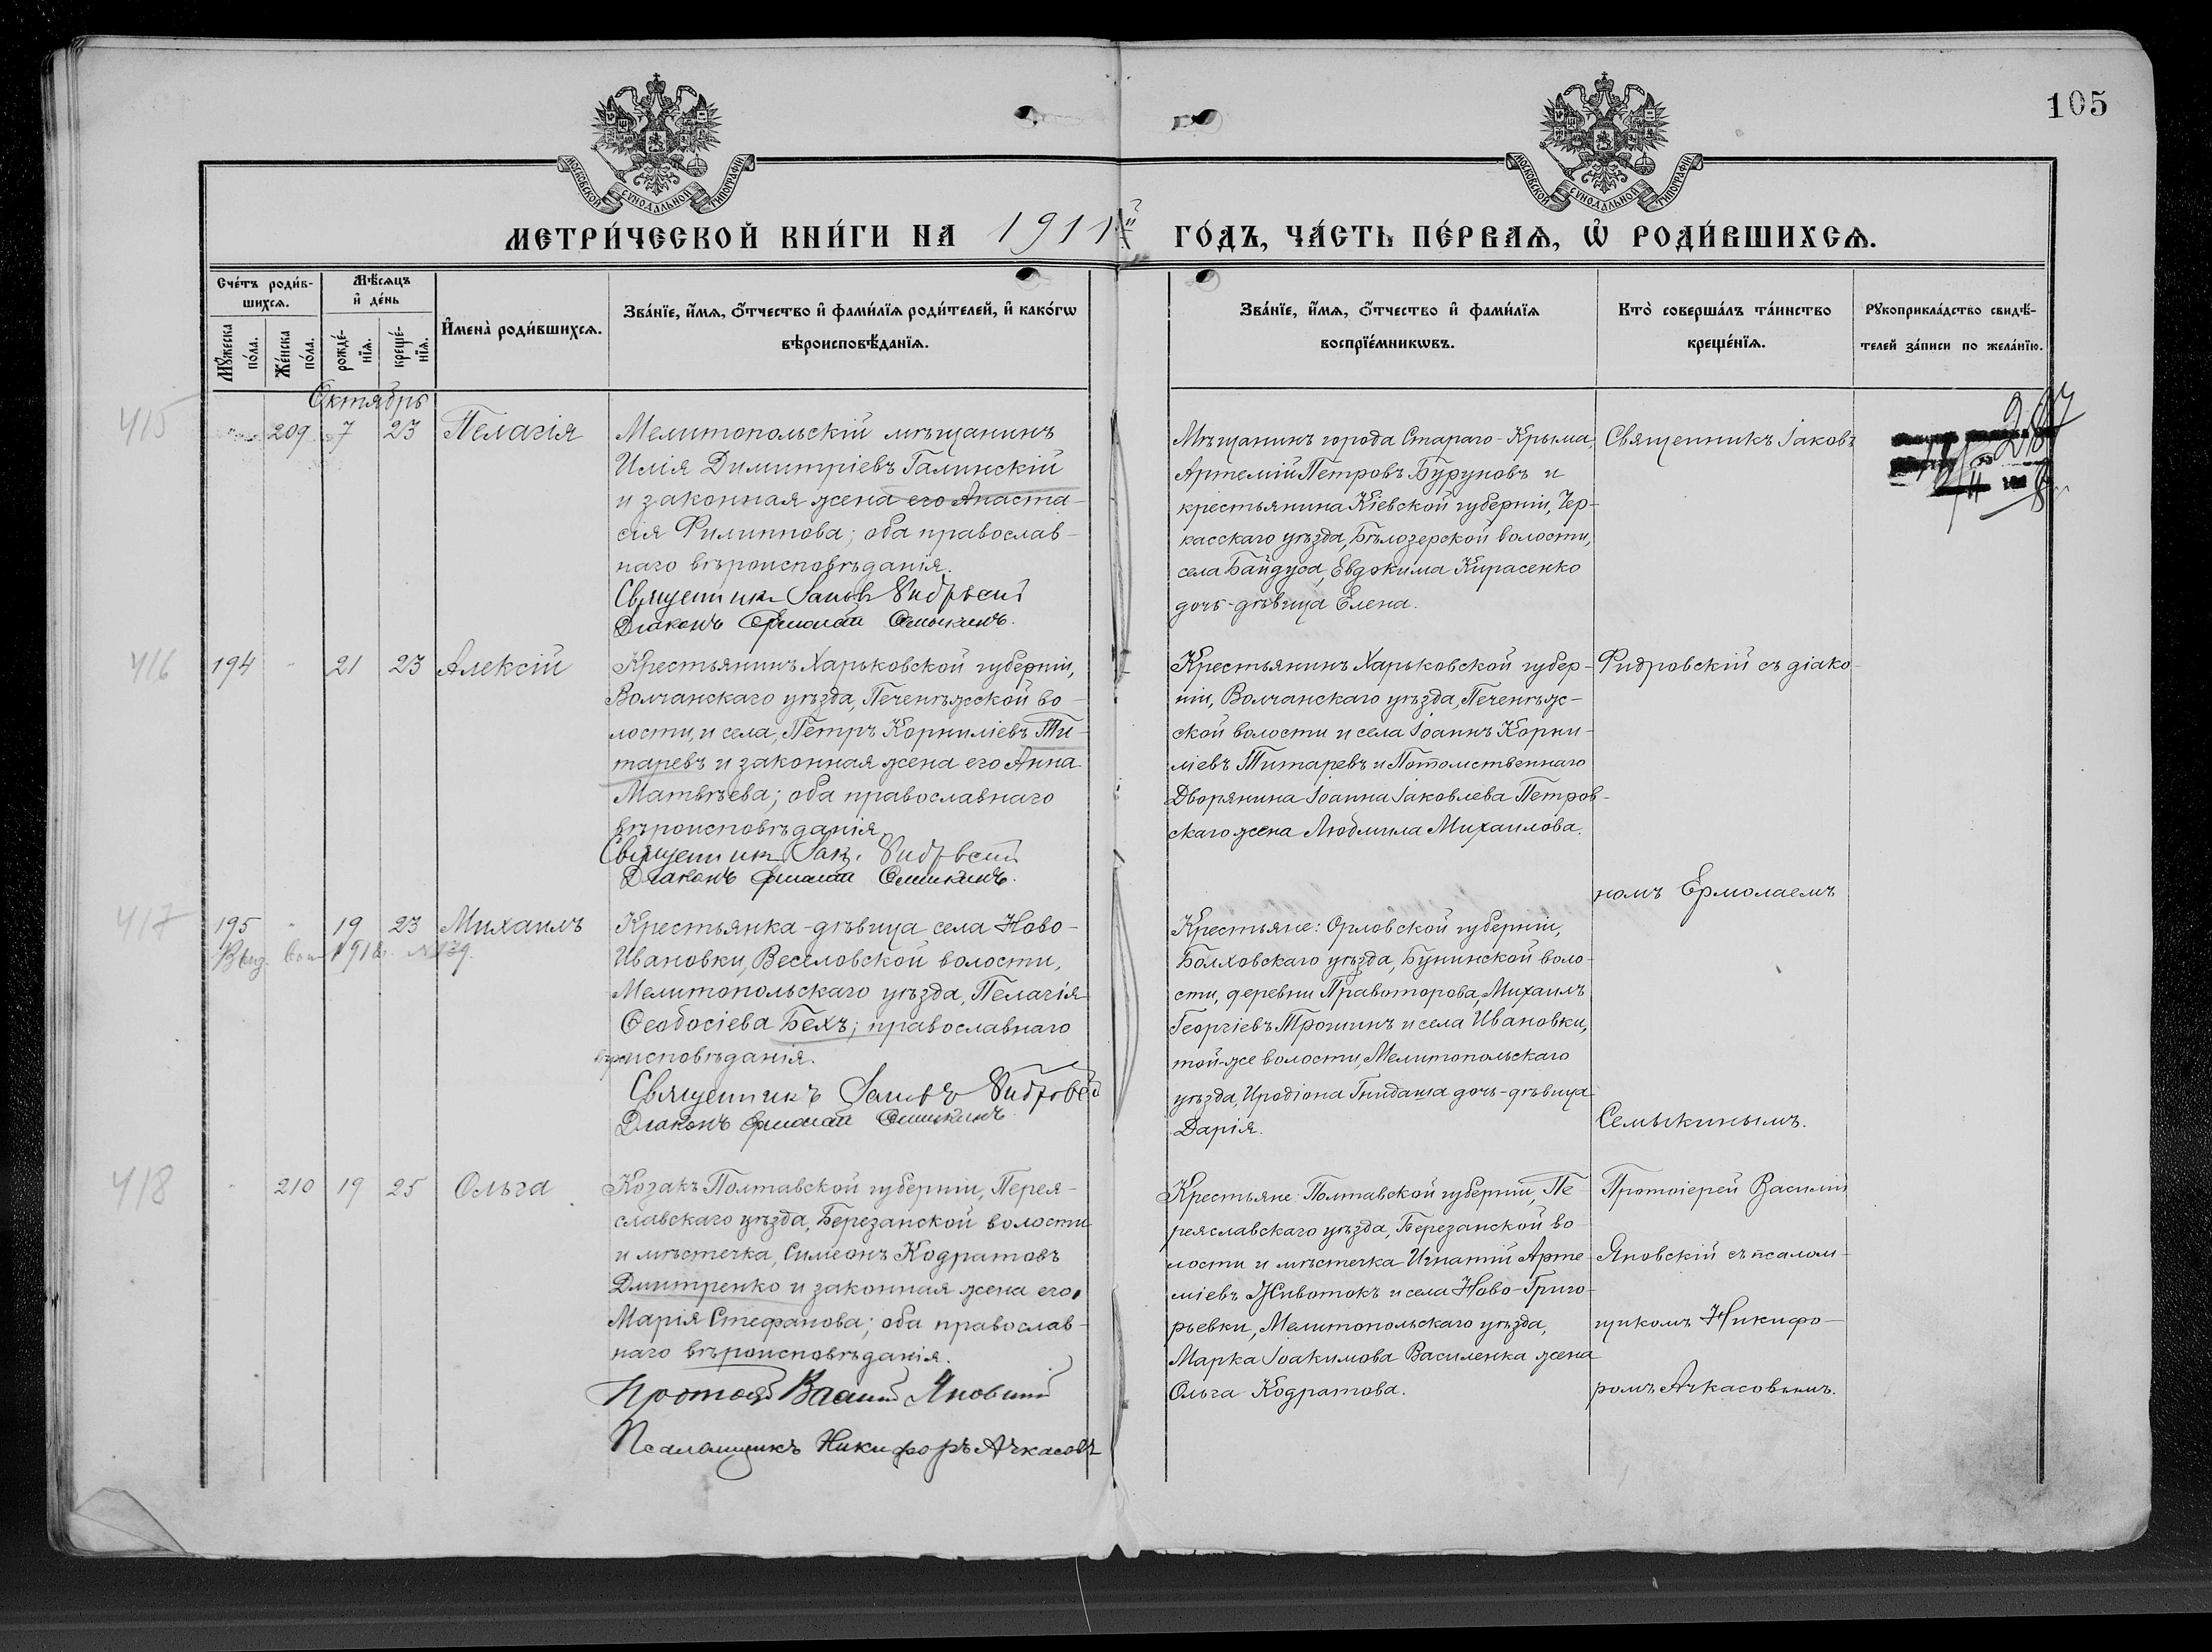 105
МОСКОВСКОЙ СУНОДАЛЬНОЙ ТИПОГРАФІИ
МОСКОВСКОЙ СУНОДАЛЬНОЙ ТИПОГРАФІИ
МЕТРИ́ЧЕСКОЙ КНИ́ГИ НА 1911й ГО́ДЪ, ЧА́СТЬ ПЕ́РВАѦ, Ѡ҆ РОДИ́ВШИХСѦ.
Сче́тъ роди́в-
шихсѧ.
Мѣ́сѧцъ
и҆ де́нь
Мꙋ́жеска по́ла.
Же́нска по́ла.
рожде́-
нїѧ.
креще́-
нїѧ.
И҆мена̀ роди́вшихсѧ.
Зва́нїе, и҆́мѧ, ѻ҆́тчество и҆ фами́лїѧ роди́телей, и҆ како́гѡ
вѣроисповѣ́данїѧ.
Зва́нїе, и҆́мѧ, ѻ҆́тчество и҆ фами́лїѧ
воспрїе́мникѡвъ.
Кто̀ соверша́лъ та́инство
креще́нїѧ.
Рꙋкоприкла́дство свидѣ́-
телей за́писи по жела́нїю.
Октябрь
415
209 7 23 Пелагія
Мелитопольскій мѣщанинъ
Илія Димитріевъ Галинскій
и законная жена его Анаста-
сія Филиппова; оба православ-
наго вѣроисповѣданія.
Священникъ
Діаконъ Ермолай Семыкинъ.
Мѣщанинъ города Стараго-Крыма,
Артемій Петровъ Буруновъ и
крестьянина Кіевской губерніи, Чер-
касскаго уѣзда, Бѣлозерской волости,
села Байдуса, Евдокима Кирасенко
дочь-дѣвица Елена.
Священникъ Іаковъ
416
194 - 21 23 Алексій
Крестьянинъ Харьковской губерніи,
Волчанскаго уѣзда, Печенѣжской во-
лости, и села, Петръ Корниліевъ Ти-
таревъ и законная жена его Анна
Матвѣева; оба православнаго
вѣроисповѣданія.
Священникъ
Діаконъ Ермолай Семыкинъ.
Крестьянинъ Харьковской губер-
ніи, Волчанскаго уѣзда, Печенѣж-
ской волости и села Іоаннъ Корни-
ліевъ Титаревъ и Потомственнаго
Дворянина Іоанна Іаковлева Петров-
скаго жена Людмила Михаилова.
Фидровскій съ діако-
номъ Ермолаемъ
417
195 - 19 23 Михаилъ
Крестьянка-дѣвица села Ново-
Ивановки, Веселовской волости,
Мелитопольскаго уѣзда, Пелагія
Ѳеодосіева Бехъ; православнаго
вѣроисповѣданія.
Священникъ
Діаконъ Ермолай Семыкинъ.
Крестьяне: Орловской губерніи,
Болховскаго уѣзда, Бунинской воло-
сти, деревни Правоторова, Михаилъ
Георгіевъ Трошинъ и села Ивановки,
той-же волости, Мелитопольскаго
уѣзда, Иродіона Гнидаша дочь-дѣвица
Дарія.
Семыкинымъ.
418
- 210 19 25 Ольга
Козакъ Полтавской губерніи, Перея-
славскаго уѣзда, Березанской волости
и мѣстечка, Симеонъ Кодратовъ
Дмитренко и законная жена его,
Марія Стефанова; оба православ-
наго вѣроисповѣданія.
Василій Яновскій
Псаломщикъ Никифоръ Ачкасовъ
Крестьяне: Полтавской губерніи, Пе-
реяславскаго уѣзда, Березанской во-
лости и мѣстечка Игнатій Арте-
міевъ Животокъ и села Ново-Григо-
рьевки, Мелитопольскаго уѣзда,
Марка Іоакимова Василенка жена
Ольга Кодратова.
Протоіерей Василій
Яновскій съ псалом-
щикомъ Никифо-
ромъ Ачкасовымъ.